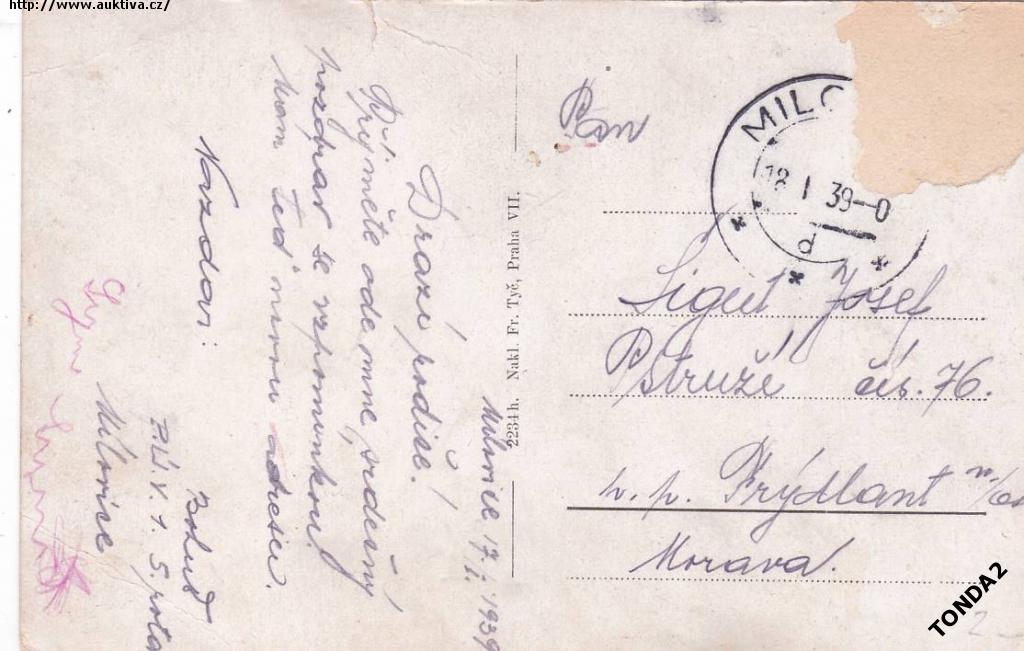 http://www.auktiva.cz/
Milovice 17./I. 1939
Drazí rodiče!
Přijměte ode mne srdečný
pozdrav se vzpomínkou!
Mám teď novou adresu.
Nazdar:
Bohuš
5. rota
Milovice
2234h. Nakl. Fr. Tyč, Praha VII.
Pan
MILO
18 I 39-0
d
Sigut Josef
Pstruží čís. 76.
p. p. Frýdlant n/Os
Morava.
TONDA2
2